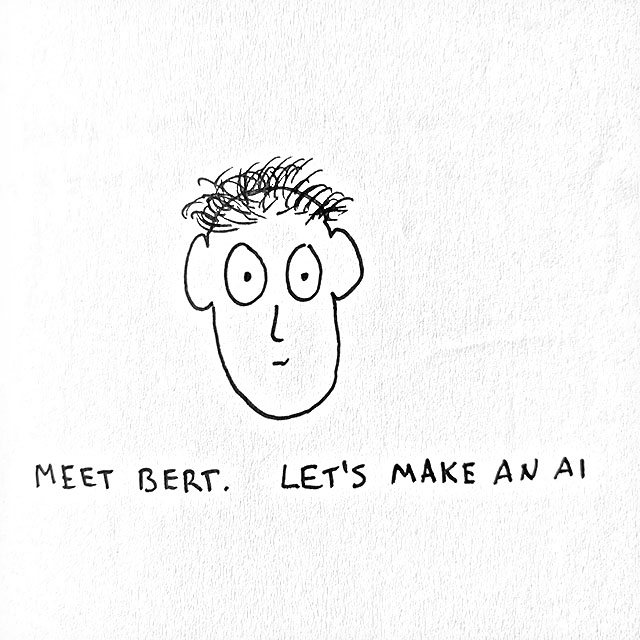 MEET BERT. LET'S MAKE AN AI